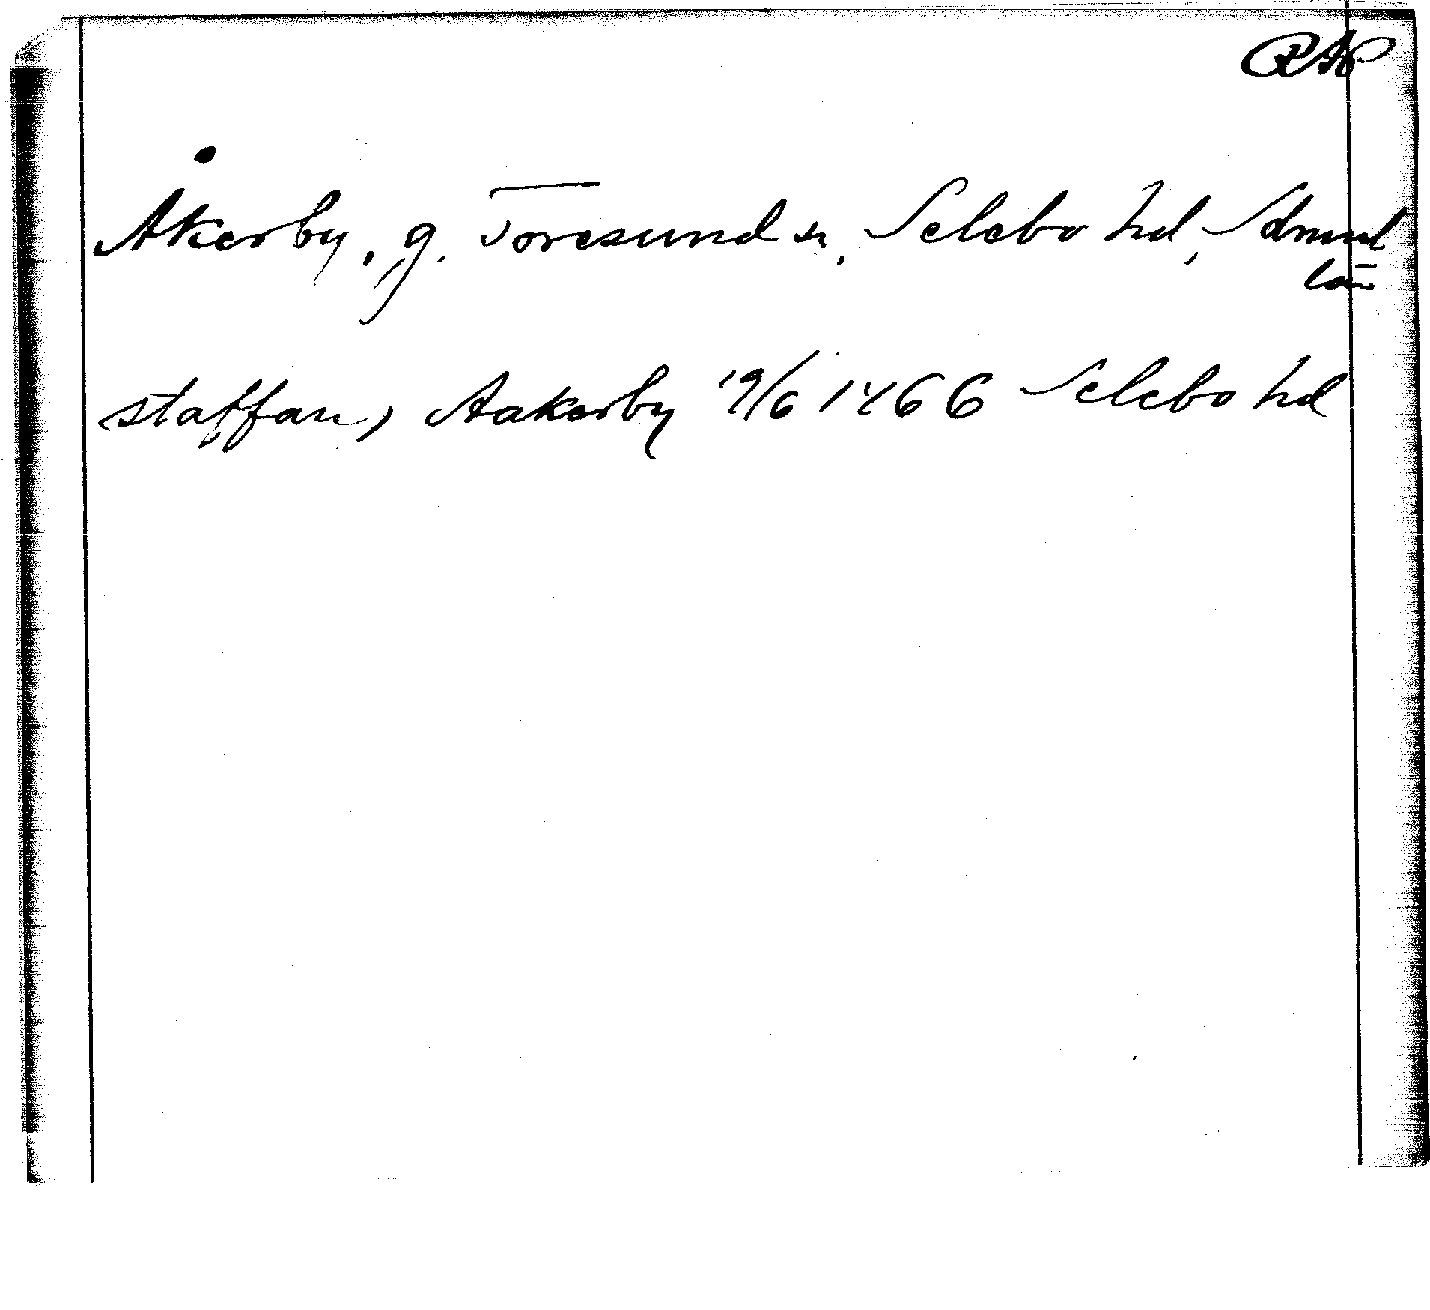 RAP
Åkerby, g. Toresund sn, Selebo hd, Sdmnl
län
staffan, Aakerby 19/6 1466 Selebo hd